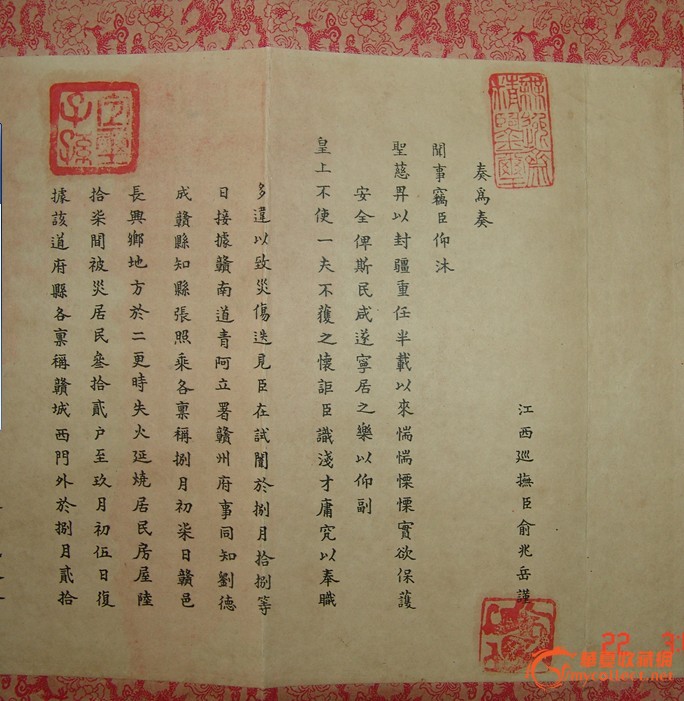 江西巡撫臣俞兆岳謹
奏爲奏
聞事竊臣仰沐
聖慈畀以封疆重任半載以來惴惴慄慄實欲保護
安全俾斯民咸遂寧居之樂以仰副
皇上不使一夫不獲之懷詎臣識淺才庸究以奉職
多違以致災傷迭見臣在試闈於捌月拾捌等
日接據贛南道青阿立署贛州府事同知劉德
成贛縣知縣張照乘各稟稱捌月初柒日贛邑
長興鄉地方於二更時失火延燒居民房屋陸
拾柒間被災居民叄拾貳户至玖月初伍日復
據該道府縣各稟稱贛城西門外於捌月貳拾
子孫
22